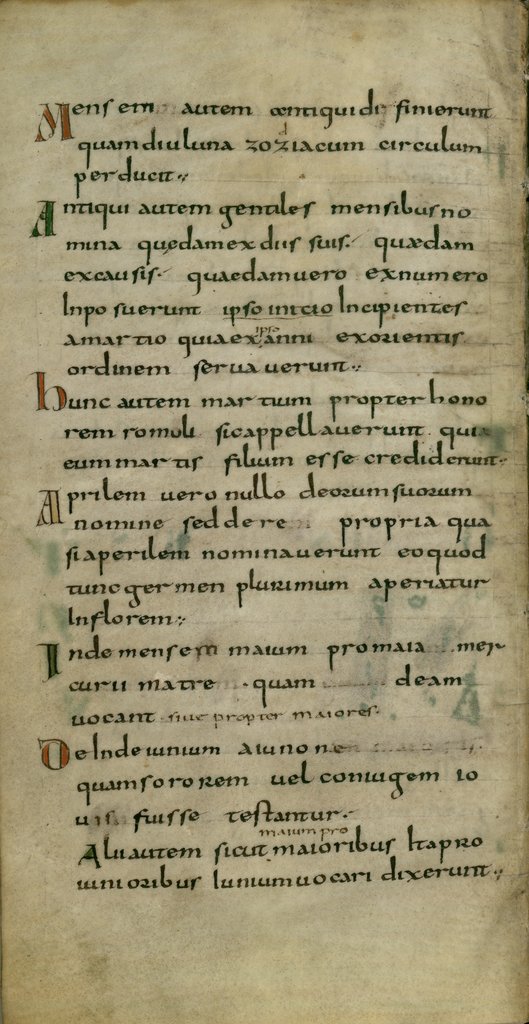 Mensem autem antiqui diffinierunt
quamdiu luna zoziacum circulum
perducit
Antiqui autem gentiles mensibus no
mina quędam ex diis suis. quædam
ex causis. quaedam uero ex numero
Inposuerunt ipso initio Incipientes
a martio quia ex ipso anni exorientis
ordinem seruauerunt
hunc autem martium propter hono
rem romuli sic appellauerunt quia
eum martis filium esse crediderunt
Aprilem uero nullo deorum suorum
nomine sed de re propria qua
si aperilem nominauerunt eo quod
tunc germen plurimum aperiatur
In florem
Inde mensem maium pro maia mer
curii matre quam deam
uocant siue propter maiores
DeInde iunium a iunone
quam sororem uel coniugem io
uis fuisse testantur
Alii autem sicut maium pro maioribus Ita pro
iunioribus Iunium uocari dixerunt